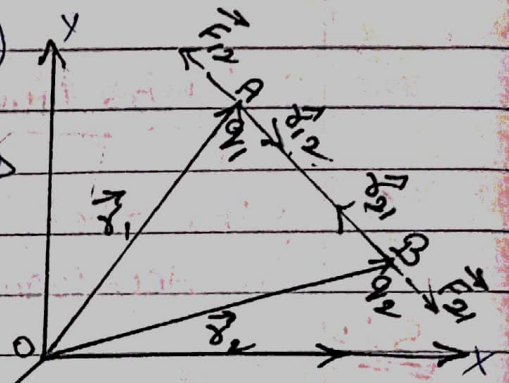 Y
F⃗₁₂
A
q₁
r⃗₁₂
r⃗₁
r⃗₂₁
B
q₂
F⃗₂₁
r⃗₂
O
X